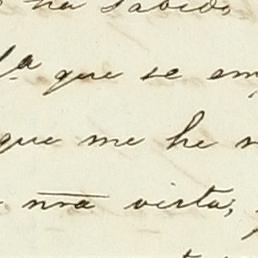 ha sabido
que se em
que me he
nra vista,